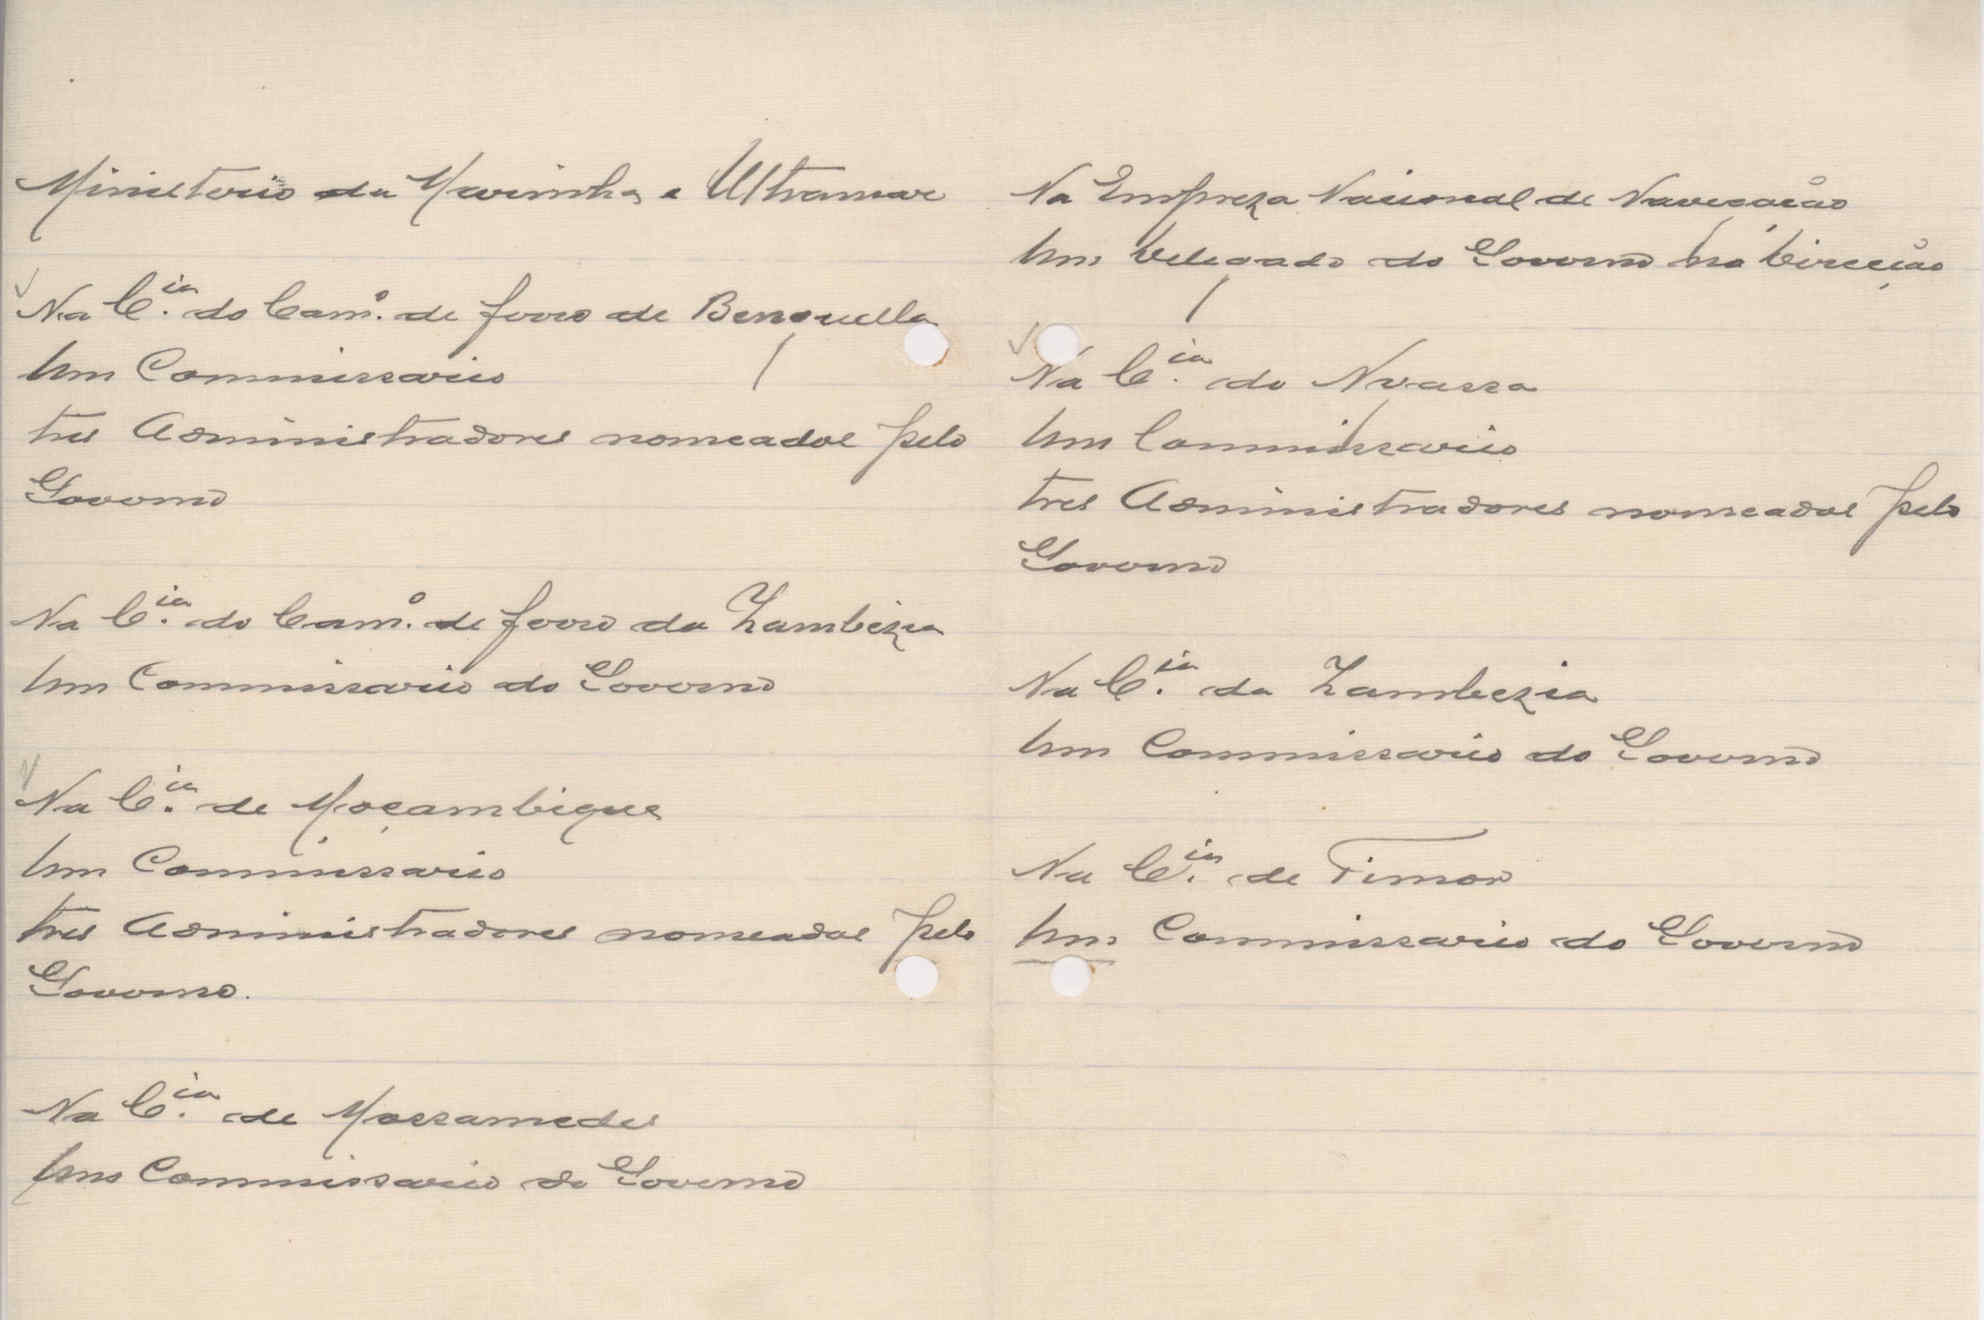 Ministerio da Marinha e Ultramar
Na C.ia do Cam.o de ferro de Benguella
Um Commissario
tres Administradores nomeados pelo
Governo
Na C.ia do Cam.o de ferro da Zambezia
Um Commissario do Governo
Na C.ia de Moçambique
Um Commissario
tres Administradores nomeados pelo
Governo.
Na C.ia de Mossamedes
Um Commissario do Governo
Na Empreza Nacional de Navegação
Um Delegado do Governo na Direcção
Na C.ia do Nyassa
Um Commissario
tres Administradores nomeados pelo
Governo
Na C.ia da Zambezia
Um Commissario do Governo
Na C.ia de Timor
Um Commissario do Governo